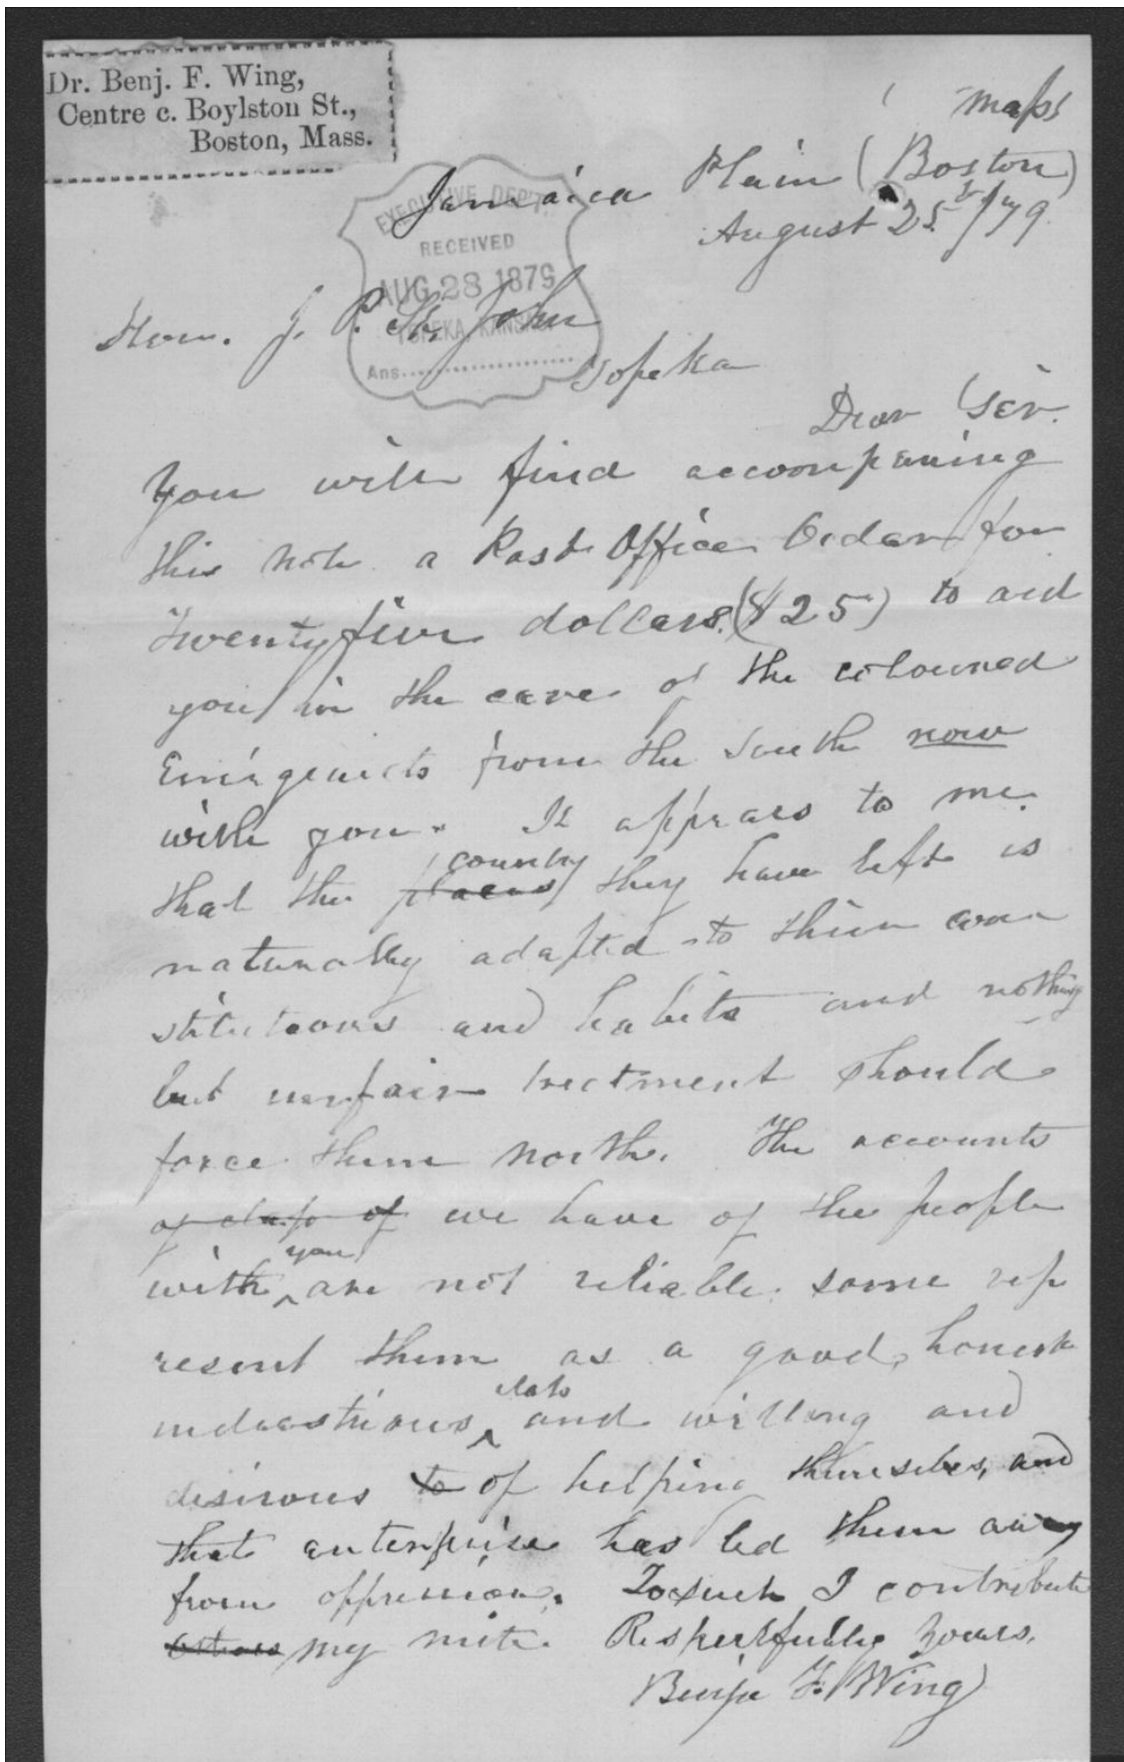 Dr. Benj. F. Wing,
Centre c. Boylston St.,
Boston, Mass.
Mass
Jamaica Plain (Boston)
August 25th/79.
EXECUTIVE DEP'T.
RECEIVED
AUG 28 1879
TOPEKA, KANSAS
Ans
Hon. J. P. St. John
Topeka
Dear Sir.
You will find accompaning
this note a Post Office Order for
Twenty five dollars ($25) to aid
you in the care of the coloured
Emigrants from the South now
with you. It appears to me
that the places country they have left is
naturally adapted to their con
stitutions and habits and nothing
but unfair treatment should
force them north. The accounts
of class of we have of the people
with you are not reliable. some rep
resent them as a good, honest
industrious class and willing and
desirous to of helping themselves, and
that enterprise has led them away
from oppression. To such I contribute
my mite. Respectfully yours,
Benja F. Wing